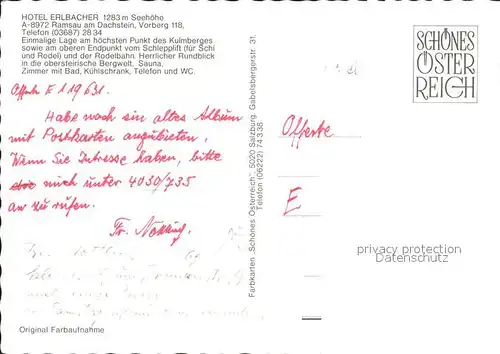 HOTEL ERLBACHER 1283 m Seehöhe
A-8972 Ramsau am Dachstein, Vorberg 118,
Telefon (03687) 28 34
Einmalige Lage am höchsten Punkt des Kulmberges
sowie am oberen Endpunkt vom Schlepplift (für Schi
und Rodel) und der Rodelbahn. Herrlicher Rundblick
in die obersteirische Bergwelt, Sauna,
Zimmer mit Bad, Kühlschrank, Telefon und WC.
Offerte E 119631.
Habe noch ein altes Album
mit Postkarten anzubieten,
Wenn Sie Intresse haben, bitte
mich unter 4030/735
an zu rufen.
Fr.
Original Farbaufnahme
Farbkarten „Schönes Österreich", 5020 Salzburg, Gabelsbergerstr. 31,
Telefon (06222) 74 3 38
SCHÖNES
ÖSTER
REICH
Offerte
E
privacy protection
Datenschutz